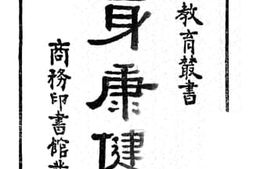 教育叢書
身康健
商務印書館